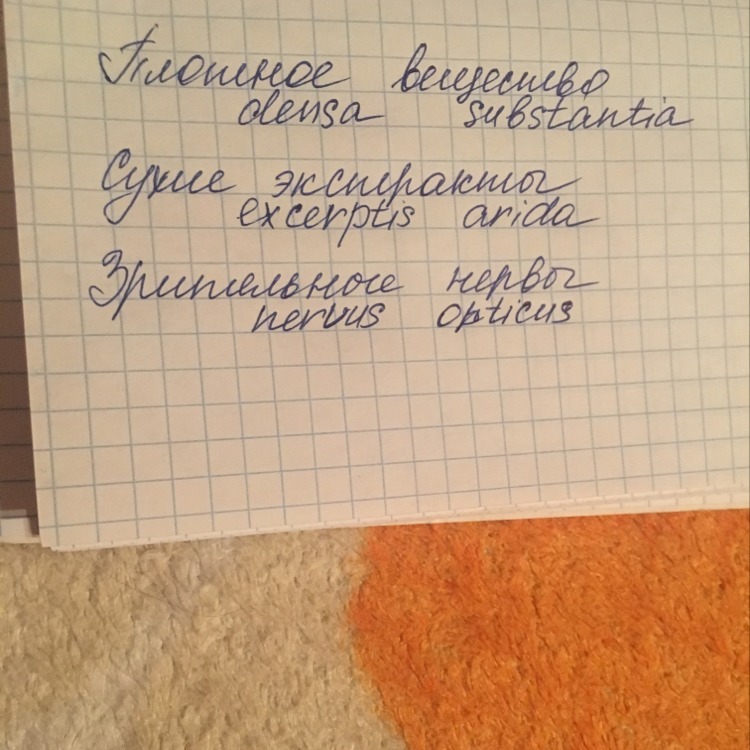 Плотное вещество
densa substantia
Сухие экстракты
excerptis arida
Зрительные нервы
nervus opticus